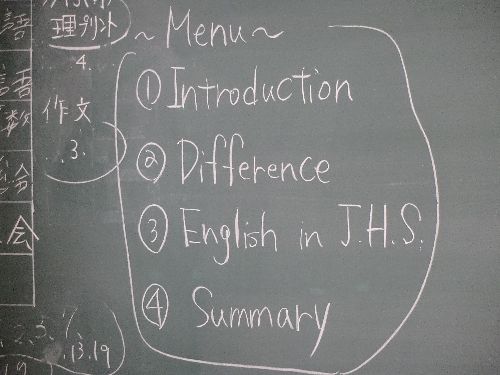 語
語
数
会
理プリント
4.
作文
3.
2.3.7
13.19
~Menu~
① Introduction
② Difference
③ English in J.H.S.
④ Summary